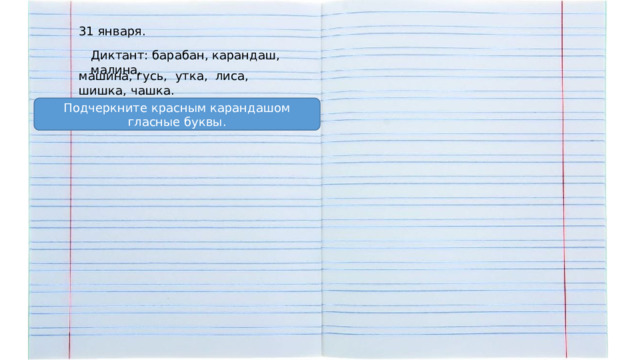 31 января.
Диктант: барабан, карандаш,
малина,
машина, гусь, утка, лиса,
шишка, чашка.
Подчеркните красным карандашом
гласные буквы.